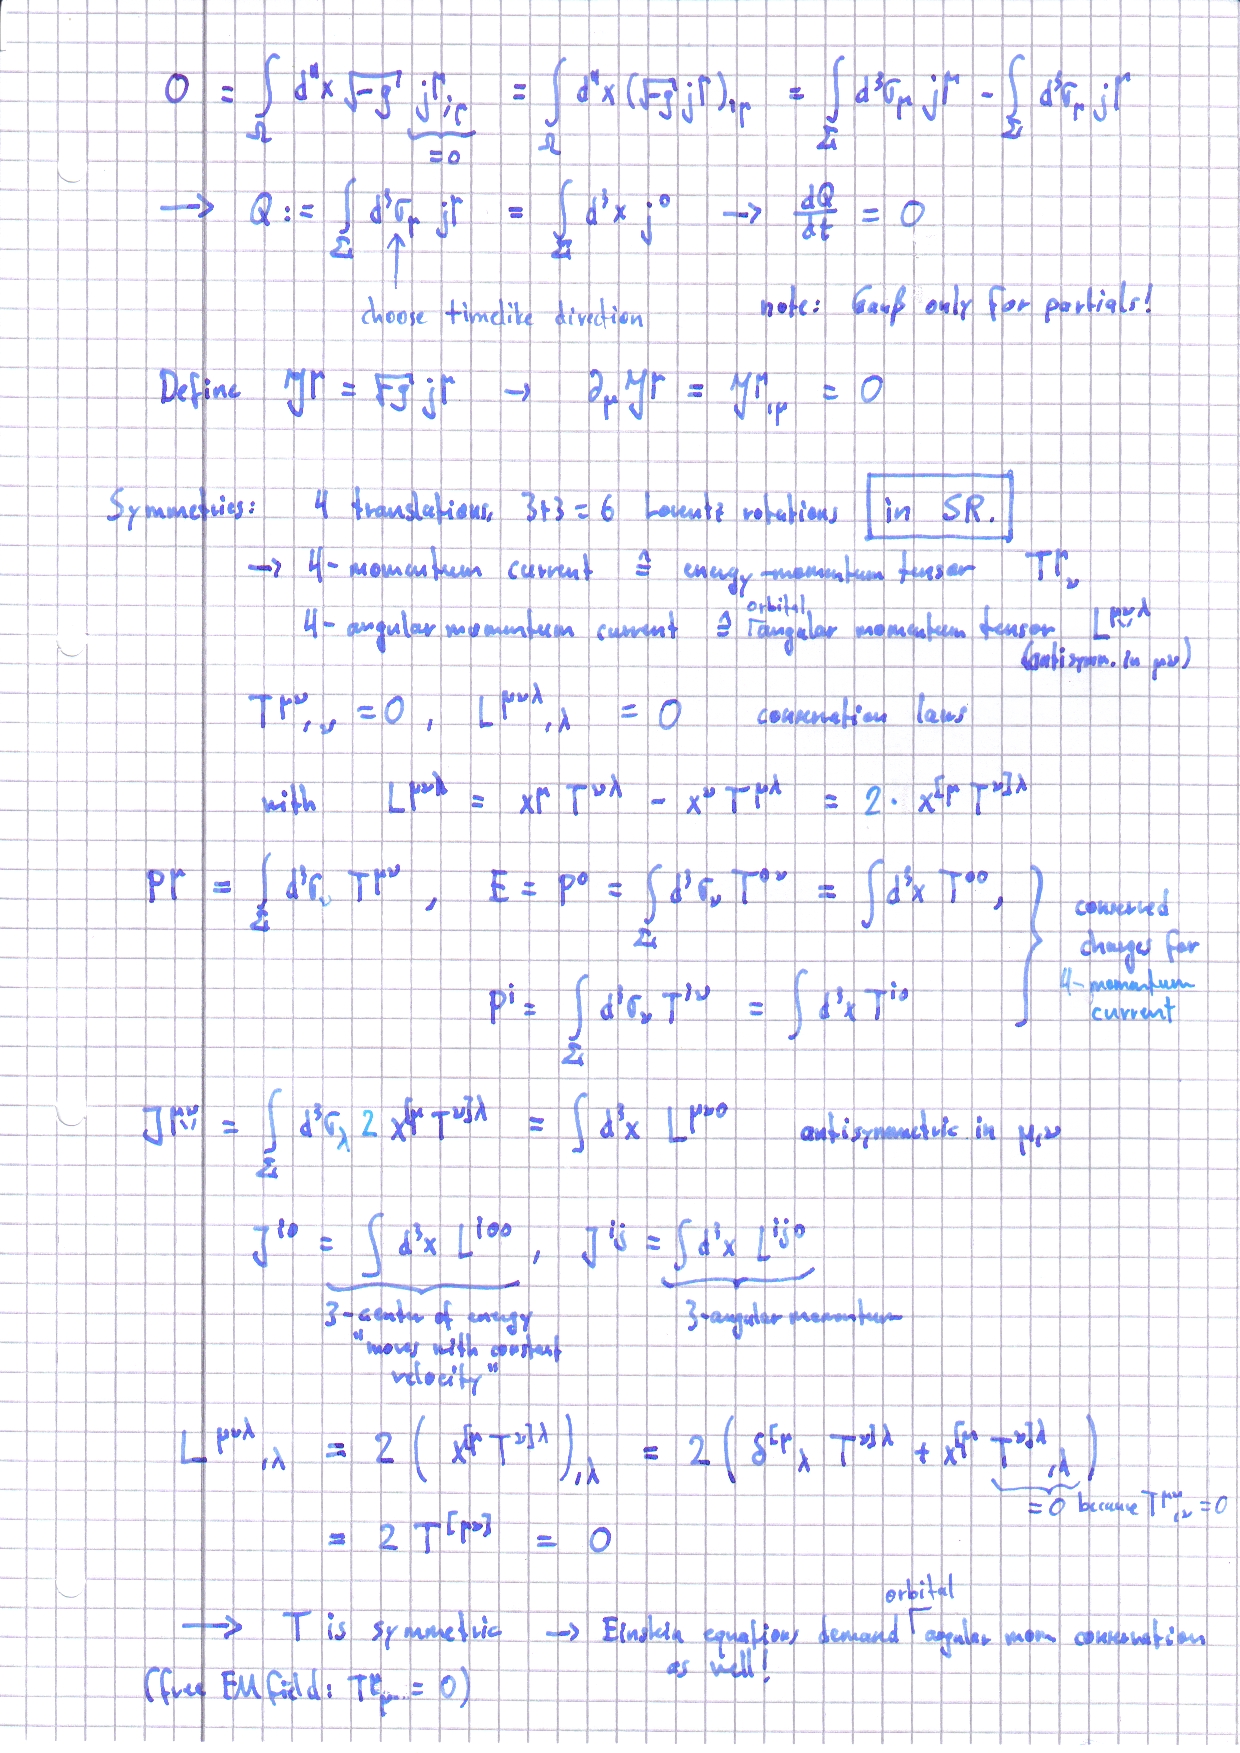 0 = ∫_Ω d⁴x √-g j^μ_{;μ} = ∫_Ω d⁴x (√-g j^μ)_{,μ} = ∫_Σ d³σ_μ j^μ - ∫_Σ' d³σ_μ j^μ
=0
→ Q := ∫_Σ d³σ_μ j^μ = ∫_Σ d³x j⁰ → dQ/dt = 0
choose timelike direction note: Gauß only for partials!
Define 𝒥^μ = √-g j^μ → ∂_μ 𝒥^μ = 𝒥^μ_{,μ} = 0
Symmetries: 4 translations, 3+3=6 Lorentz rotations in SR.
→ 4-momentum current ≙ energy-momentum tensor T^μ_ν
4-angular momentum current ≙ orbital angular momentum tensor L^{μνλ}
(antisymm. in μν)
T^{μν}_{,ν} = 0, L^{μνλ}_{,λ} = 0 conservation laws
with L^{μνλ} = x^μ T^{νλ} - x^ν T^{μλ} = 2 · x^{[μ} T^{ν]λ}
P^μ = ∫_Σ d³σ_ν T^{μν}, E = P⁰ = ∫_Σ d³σ_ν T^{0ν} = ∫ d³x T^{00},
P^i = ∫_Σ d³σ_ν T^{iν} = ∫ d³x T^{i0}
conserved
charges for
4-momentum
current
J^{μν} = ∫_Σ d³σ_λ 2 x^{[μ} T^{ν]λ} = ∫ d³x L^{μν0} antisymmetric in μ,ν
J^{i0} = ∫ d³x L^{i00}, J^{ij} = ∫ d³x L^{ij0}
3-center of energy 3-angular momentum
"moves with constant
velocity"
L^{μνλ}_{,λ} = 2 ( x^{[μ} T^{ν]λ} )_{,λ} = 2 ( δ^{[μ}_λ T^{ν]λ} + x^{[μ} T^{ν]λ}_{,λ} )
=0 because T^{μν}_{,ν} = 0
= 2 T^{[μν]} = 0
→ T is symmetric → Einstein equations demand orbital angular mom conservation
as well!
(free EM field: T^μ_μ = 0)